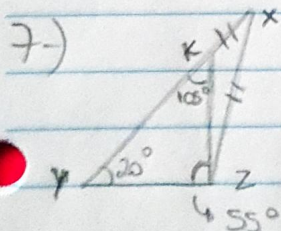 7-)
X
K
105°
Y
20°
Z
55°